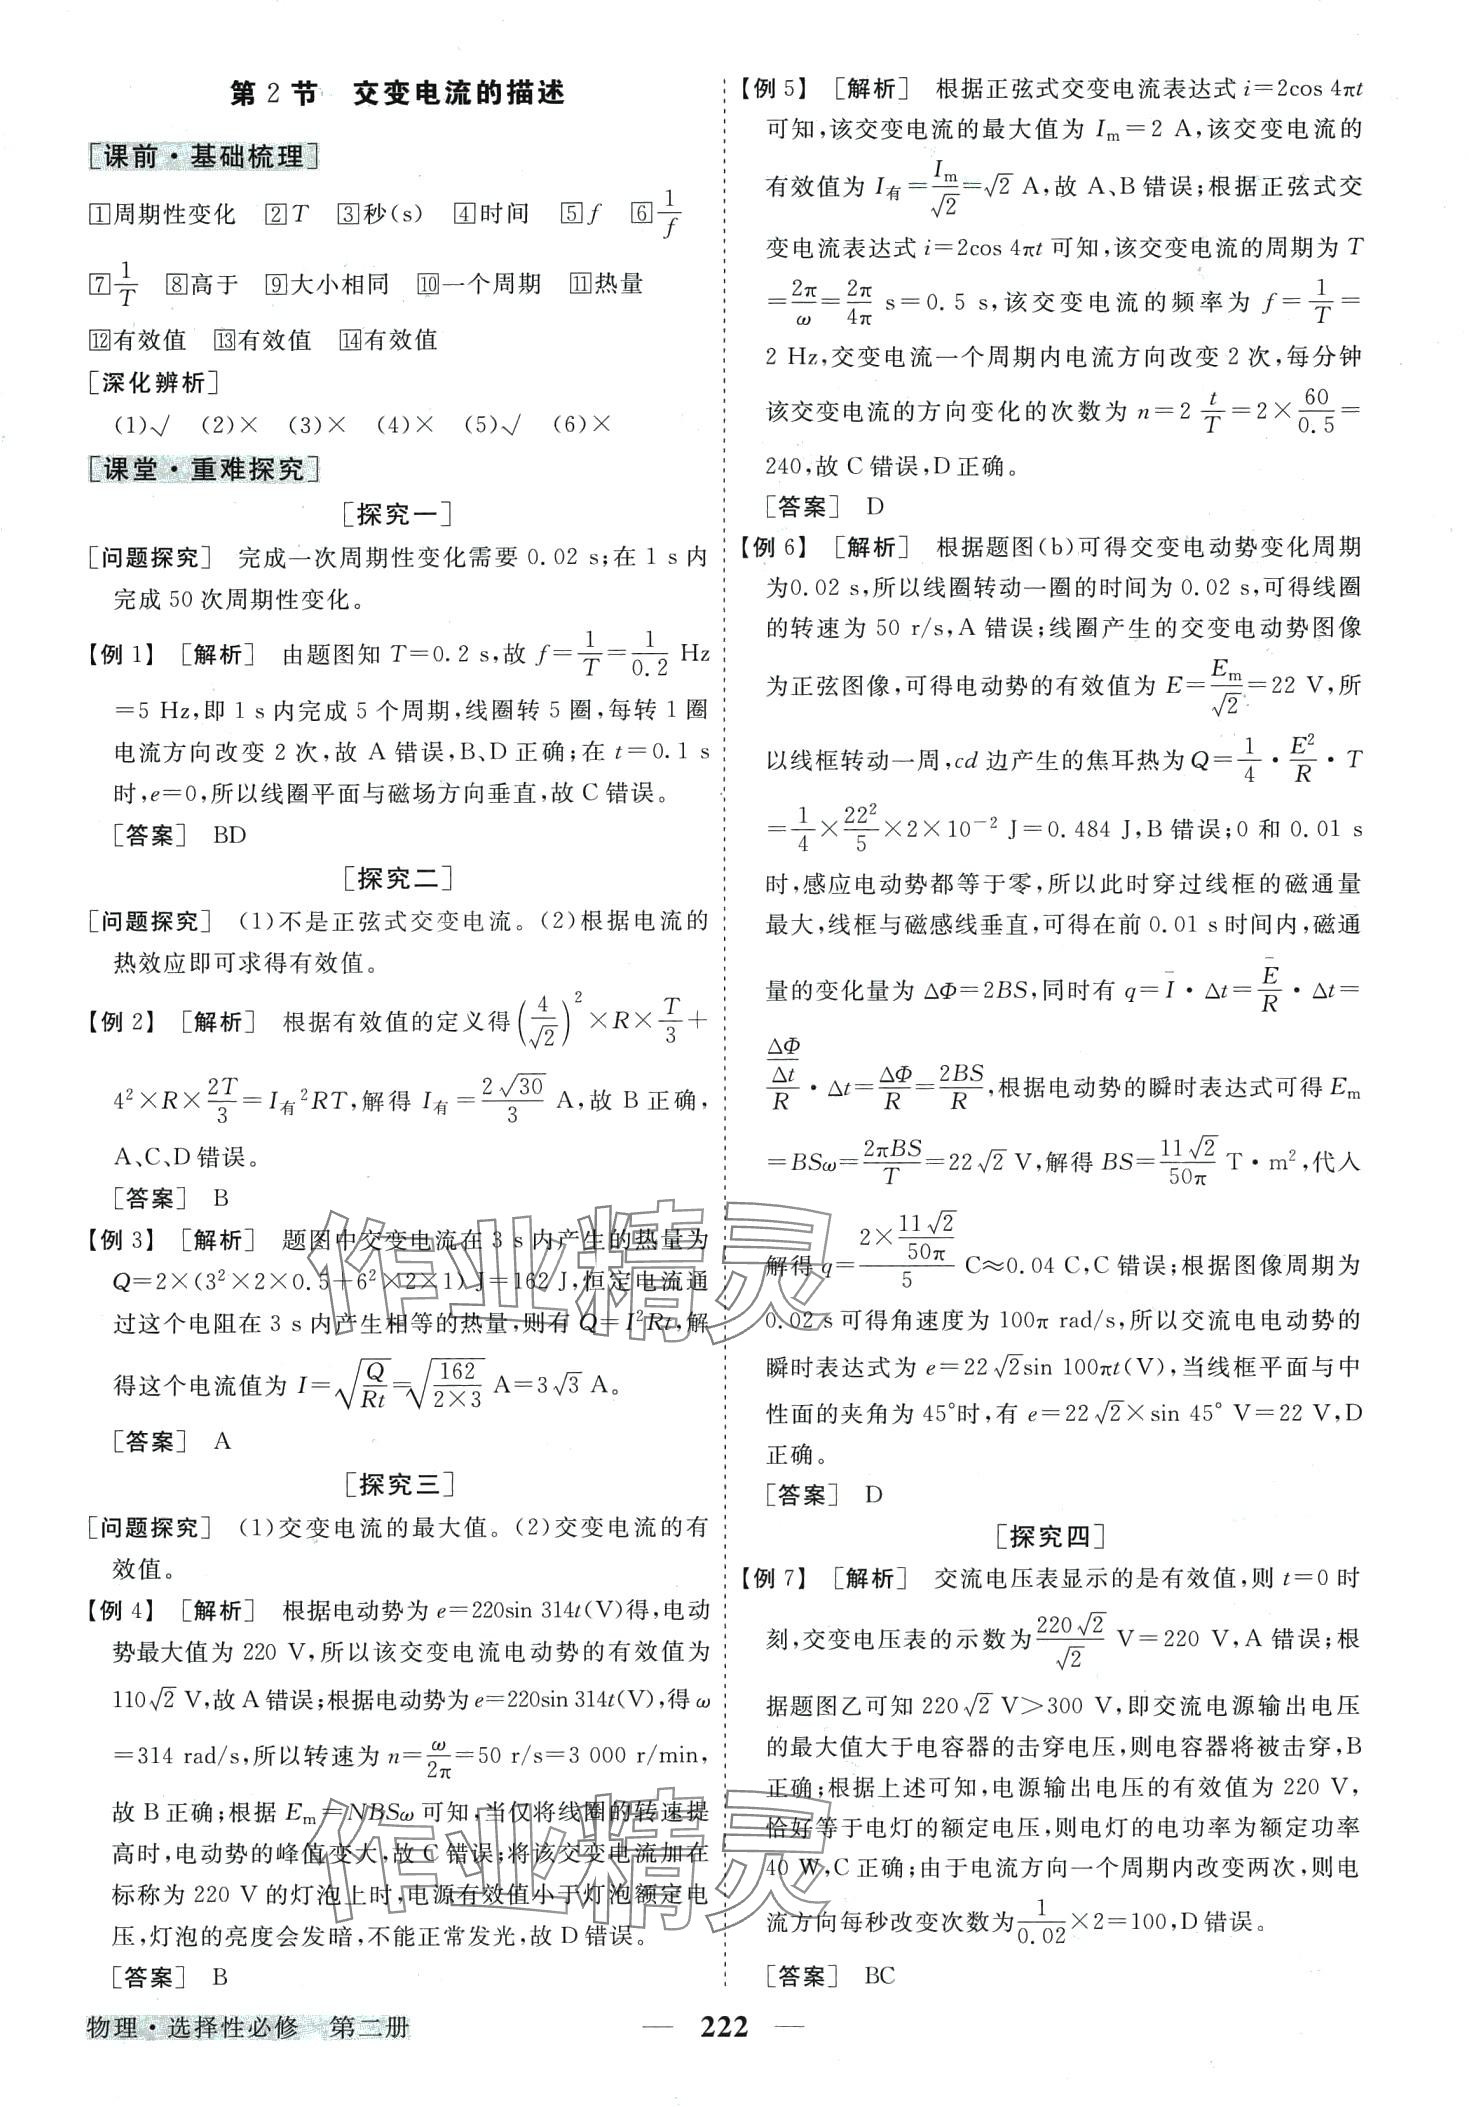 第 2 节　交变电流的描述
[课前·基础梳理]
1周期性变化　2 T　3秒(s)　4时间　5 f　6 1/f
7 1/T　8高于　9大小相同　10一个周期　11热量
12有效值　13有效值　14有效值
[深化辨析]
(1)√　(2)×　(3)×　(4)×　(5)√　(6)×
[课堂·重难探究]
[探究一]
[问题探究]　完成一次周期性变化需要 0.02 s;在 1 s 内
完成 50 次周期性变化。
【例 1】　[解析]　由题图知 T=0.2 s,故 f=1/T=1/0.2 Hz
=5 Hz,即 1 s 内完成 5 个周期,线圈转 5 圈,每转 1 圈
电流方向改变 2 次,故 A 错误,B、D 正确;在 t=0.1 s
时,e=0,所以线圈平面与磁场方向垂直,故 C 错误。
[答案]　BD
[探究二]
[问题探究]　(1)不是正弦式交变电流。(2)根据电流的
热效应即可求得有效值。
【例 2】　[解析]　根据有效值的定义得(4/√2)²×R×T/3+
4²×R×2T/3=I有²RT,解得 I有=2√30/3 A,故 B 正确,
A、C、D 错误。
[答案]　B
【例 3】　[解析]　题图中交变电流在 3 s 内产生的热量为
Q=2×(3²×2×0.5+6²×2×1) J=162 J,恒定电流通
过这个电阻在 3 s 内产生相等的热量,则有 Q=I²Rt,解
得这个电流值为 I=√(Q/Rt)=√(162/(2×3)) A=3√3 A。
[答案]　A
[探究三]
[问题探究]　(1)交变电流的最大值。(2)交变电流的有
效值。
【例 4】　[解析]　根据电动势为 e=220sin 314t(V)得,电动
势最大值为 220 V,所以该交变电流电动势的有效值为
110√2 V,故 A 错误;根据电动势为 e=220sin 314t(V),得 ω
=314 rad/s,所以转速为 n=ω/2π=50 r/s=3 000 r/min,
故 B 正确;根据 Em=NBSω 可知,当仅将线圈的转速提
高时,电动势的峰值变大,故 C 错误;将该交变电流加在
标称为 220 V 的灯泡上时,电源有效值小于灯泡额定电
压,灯泡的亮度会发暗,不能正常发光,故 D 错误。
[答案]　B
【例 5】　[解析]　根据正弦式交变电流表达式 i=2cos 4πt
可知,该交变电流的最大值为 Im=2 A,该交变电流的
有效值为 I有=Im/√2=√2 A,故 A、B 错误;根据正弦式交
变电流表达式 i=2cos 4πt 可知,该交变电流的周期为 T
=2π/ω=2π/4π s=0.5 s,该交变电流的频率为 f=1/T=
2 Hz,交变电流一个周期内电流方向改变 2 次,每分钟
该交变电流的方向变化的次数为 n=2 t/T=2×60/0.5=
240,故 C 错误,D 正确。
[答案]　D
【例 6】　[解析]　根据题图(b)可得交变电动势变化周期
为0.02 s,所以线圈转动一圈的时间为 0.02 s,可得线圈
的转速为 50 r/s,A 错误;线圈产生的交变电动势图像
为正弦图像,可得电动势的有效值为 E=Em/√2=22 V,所
以线框转动一周,cd 边产生的焦耳热为 Q=1/4·E²/R·T
=1/4×22²/5×2×10⁻² J=0.484 J,B 错误;0 和 0.01 s
时,感应电动势都等于零,所以此时穿过线框的磁通量
最大,线框与磁感线垂直,可得在前 0.01 s 时间内,磁通
量的变化量为 ΔΦ=2BS,同时有 q=Ī·Δt=Ē/R·Δt=
(ΔΦ/Δt)/R·Δt=ΔΦ/R=2BS/R,根据电动势的瞬时表达式可得 Em
=BSω=2πBS/T=22√2 V,解得 BS=11√2/50π T·m²,代入
解得 q=(2×11√2/50π)/5 C≈0.04 C,C 错误;根据图像周期为
0.02 s 可得角速度为 100π rad/s,所以交流电电动势的
瞬时表达式为 e=22√2sin 100πt(V),当线框平面与中
性面的夹角为 45°时,有 e=22√2×sin 45° V=22 V,D
正确。
[答案]　D
[探究四]
【例 7】　[解析]　交流电压表显示的是有效值,则 t=0 时
刻,交变电压表的示数为220√2/√2 V=220 V,A 错误;根
据题图乙可知 220√2 V>300 V,即交流电源输出电压
的最大值大于电容器的击穿电压,则电容器将被击穿,B
正确;根据上述可知,电源输出电压的有效值为 220 V,
恰好等于电灯的额定电压,则电灯的电功率为额定功率
40 W,C 正确;由于电流方向一个周期内改变两次,则电
流方向每秒改变次数为1/0.02×2=100,D 错误。
[答案]　BC
物理·选择性必修　第二册
— 222 —
作业精灵
作业精灵